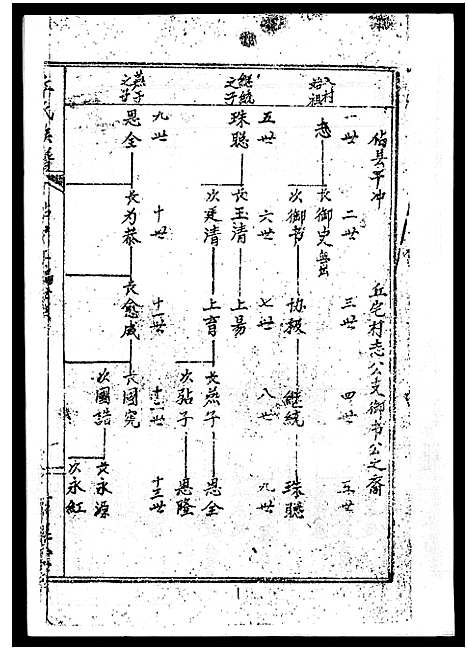 岱县平冲　丘宅村志公支御书公之裔
一世　二世　三世　四世　五世
入村始祖
志　长御史無出
次御书　协极　继统　珠聪
五世　六世　七世　八世　九世
继统之子
珠聪　长玉清　上易
次廷清　上育　长燕子　恩全
次點子　恩隆
九世　十世　十一世　十二世　十三世
燕子之子
恩全　长为恭　长愈威　长國宪
次國诰　长永源
次永紅